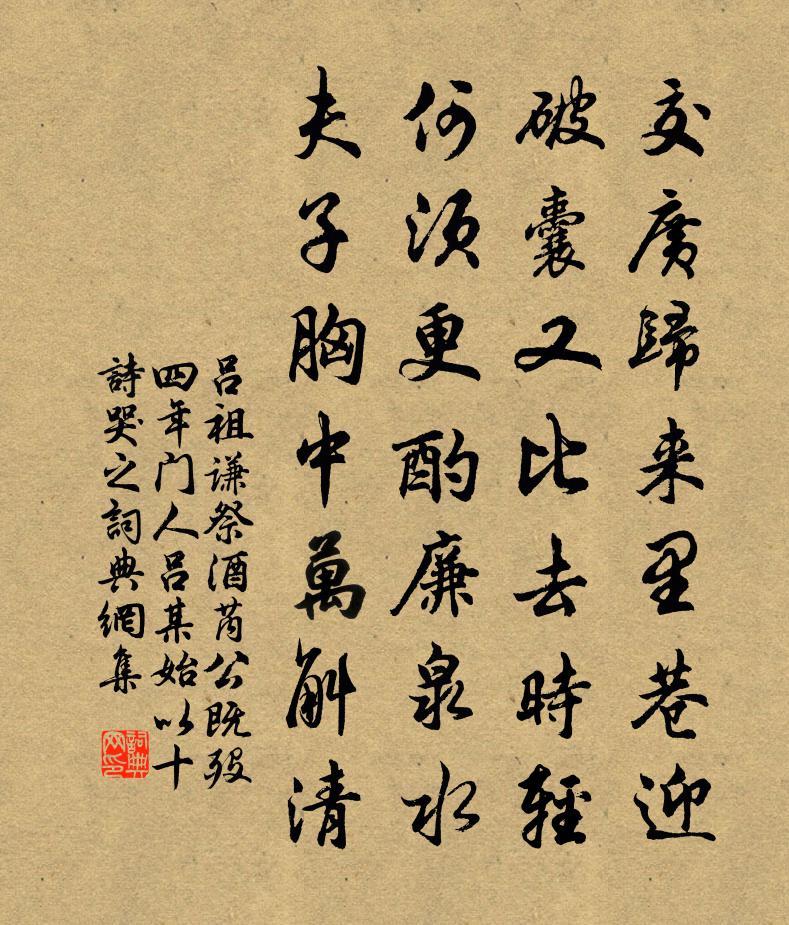 交廣歸来里巷迎
破囊又比去時輕
何須更酌廉泉水
夫子胸中萬斛清
吕祖谦祭酒芮公既殁
四年门人吕某始以十
詩哭之詞典網集
詞典网印